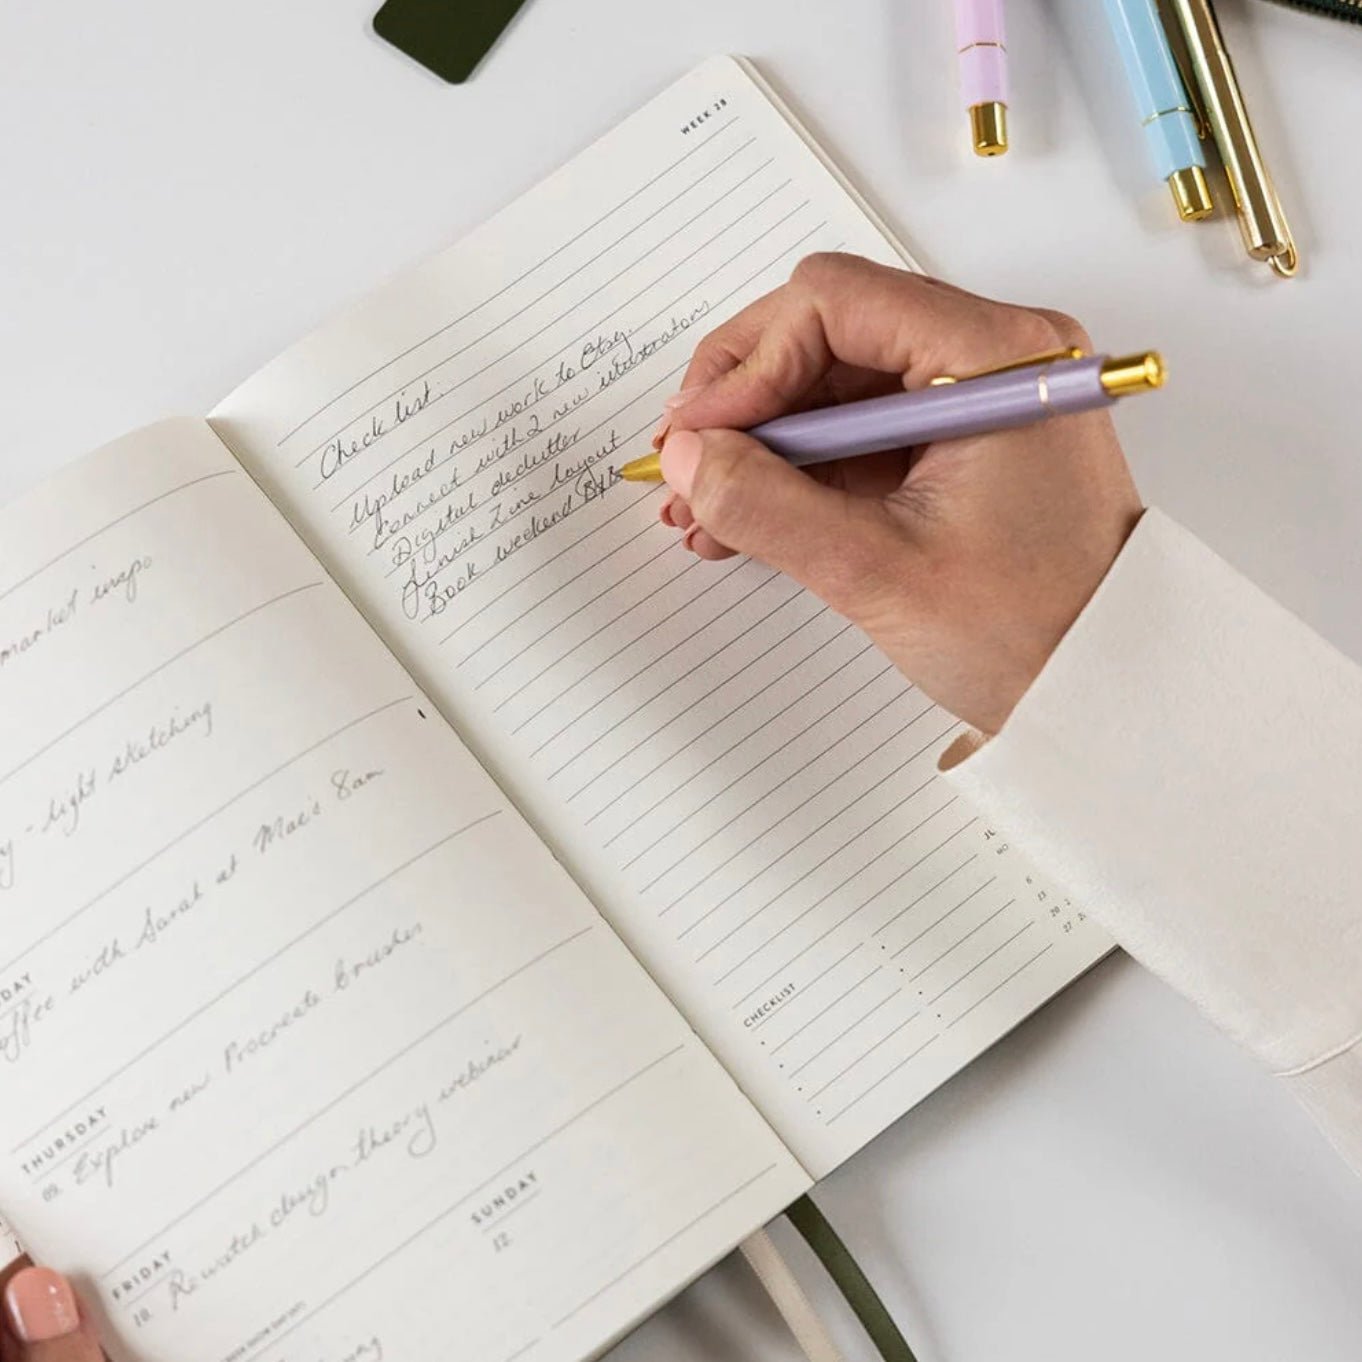 market inspo
- light sketching
DAY
offee with Sarah at Mae's 8am
THURSDAY
09. Explore new Procreate brushes
FRIDAY
10. Rewatch design theory webinar
SUNDAY
12.
WEEK 28
Check list:
Upload new work to Etsy.
Connect with 2 new illustrators
Digital declutter
Finish Zine layout
Book weekend
CHECKLIST
JU
MO
6
13
20
27